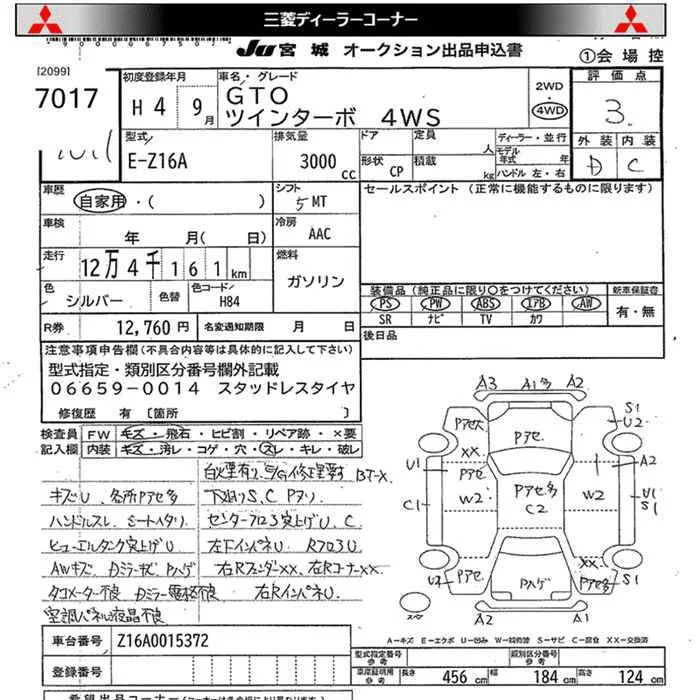 三菱ディーラーコーナー
JU 宮城 オークション出品申込書
①会場控
[2099]
7017
初度登録年月
H 4 9月
車名・グレード
GTO
ツインターボ 4WS
2WD
4WD
評価点
3.
外装 内装
D C
型式
E-Z16A
排気量
3000cc
ドア
形状 CP
定員 人
積載 kg
ディーラー・並行
モデル年式 年
ハンドル 左・右
車歴
自家用・( )
シフト
5 MT
セールスポイント (正常に機能するものに限ります)
車検
年 月( 日)
冷房
AAC
走行
12万4千161km
燃料
ガソリン
色
シルバー
色替
色コード
H84
装備品(純正品に限り○をつけてください)
PS PW ABS エアB AW
SR ナビ TV カワ
新車保証書
有・無
R券 12,760円
名変通知期限 月 日
後日品
注意事項申告欄(不具合内容等は具体的に記入して下さい)
型式指定・類別区分番号欄外記載
06659-0014 スタッドレスタイヤ
修復歴 有〔箇所 〕
検査員記入欄
FW キズ・飛石・ヒビ割・リペア跡・×要
内装 キズ・汚レ・コゲ・穴・スレ・キレ・破レ
キズU、各所Pアセ多
ハンドルスレ、シートヘタリ
下回りS,C Pヌリ
ヒューエルタンク突上げU
左下インパネU
AWキズ Dミラーキズ Pハゲ
右Rフェンダ××、右Rコーナー××
タコメーター不良 Dミラー電格不良
右RインパネU
空調パネル液晶不良
A3 A1多 A2
Pアセ
Pアセ
S1
U2
××
Pアセ
U1
A2
W2
Pアセ多
C2
W2
C1
U1
S1
××
U2 Pアセ
Pハゲ
Pアセ多
S1
A2 A1
A=キズ E=エクボ U=凹み W=板修跡 S=サビ C=腐食 XX=交換済
車台番号 Z16A0015372
登録番号
型式指定番号 参考
類別区分番号 参考
車庫証明用 参考 長さ 456cm 幅 184cm 高さ 124cm
希望出品コーナー